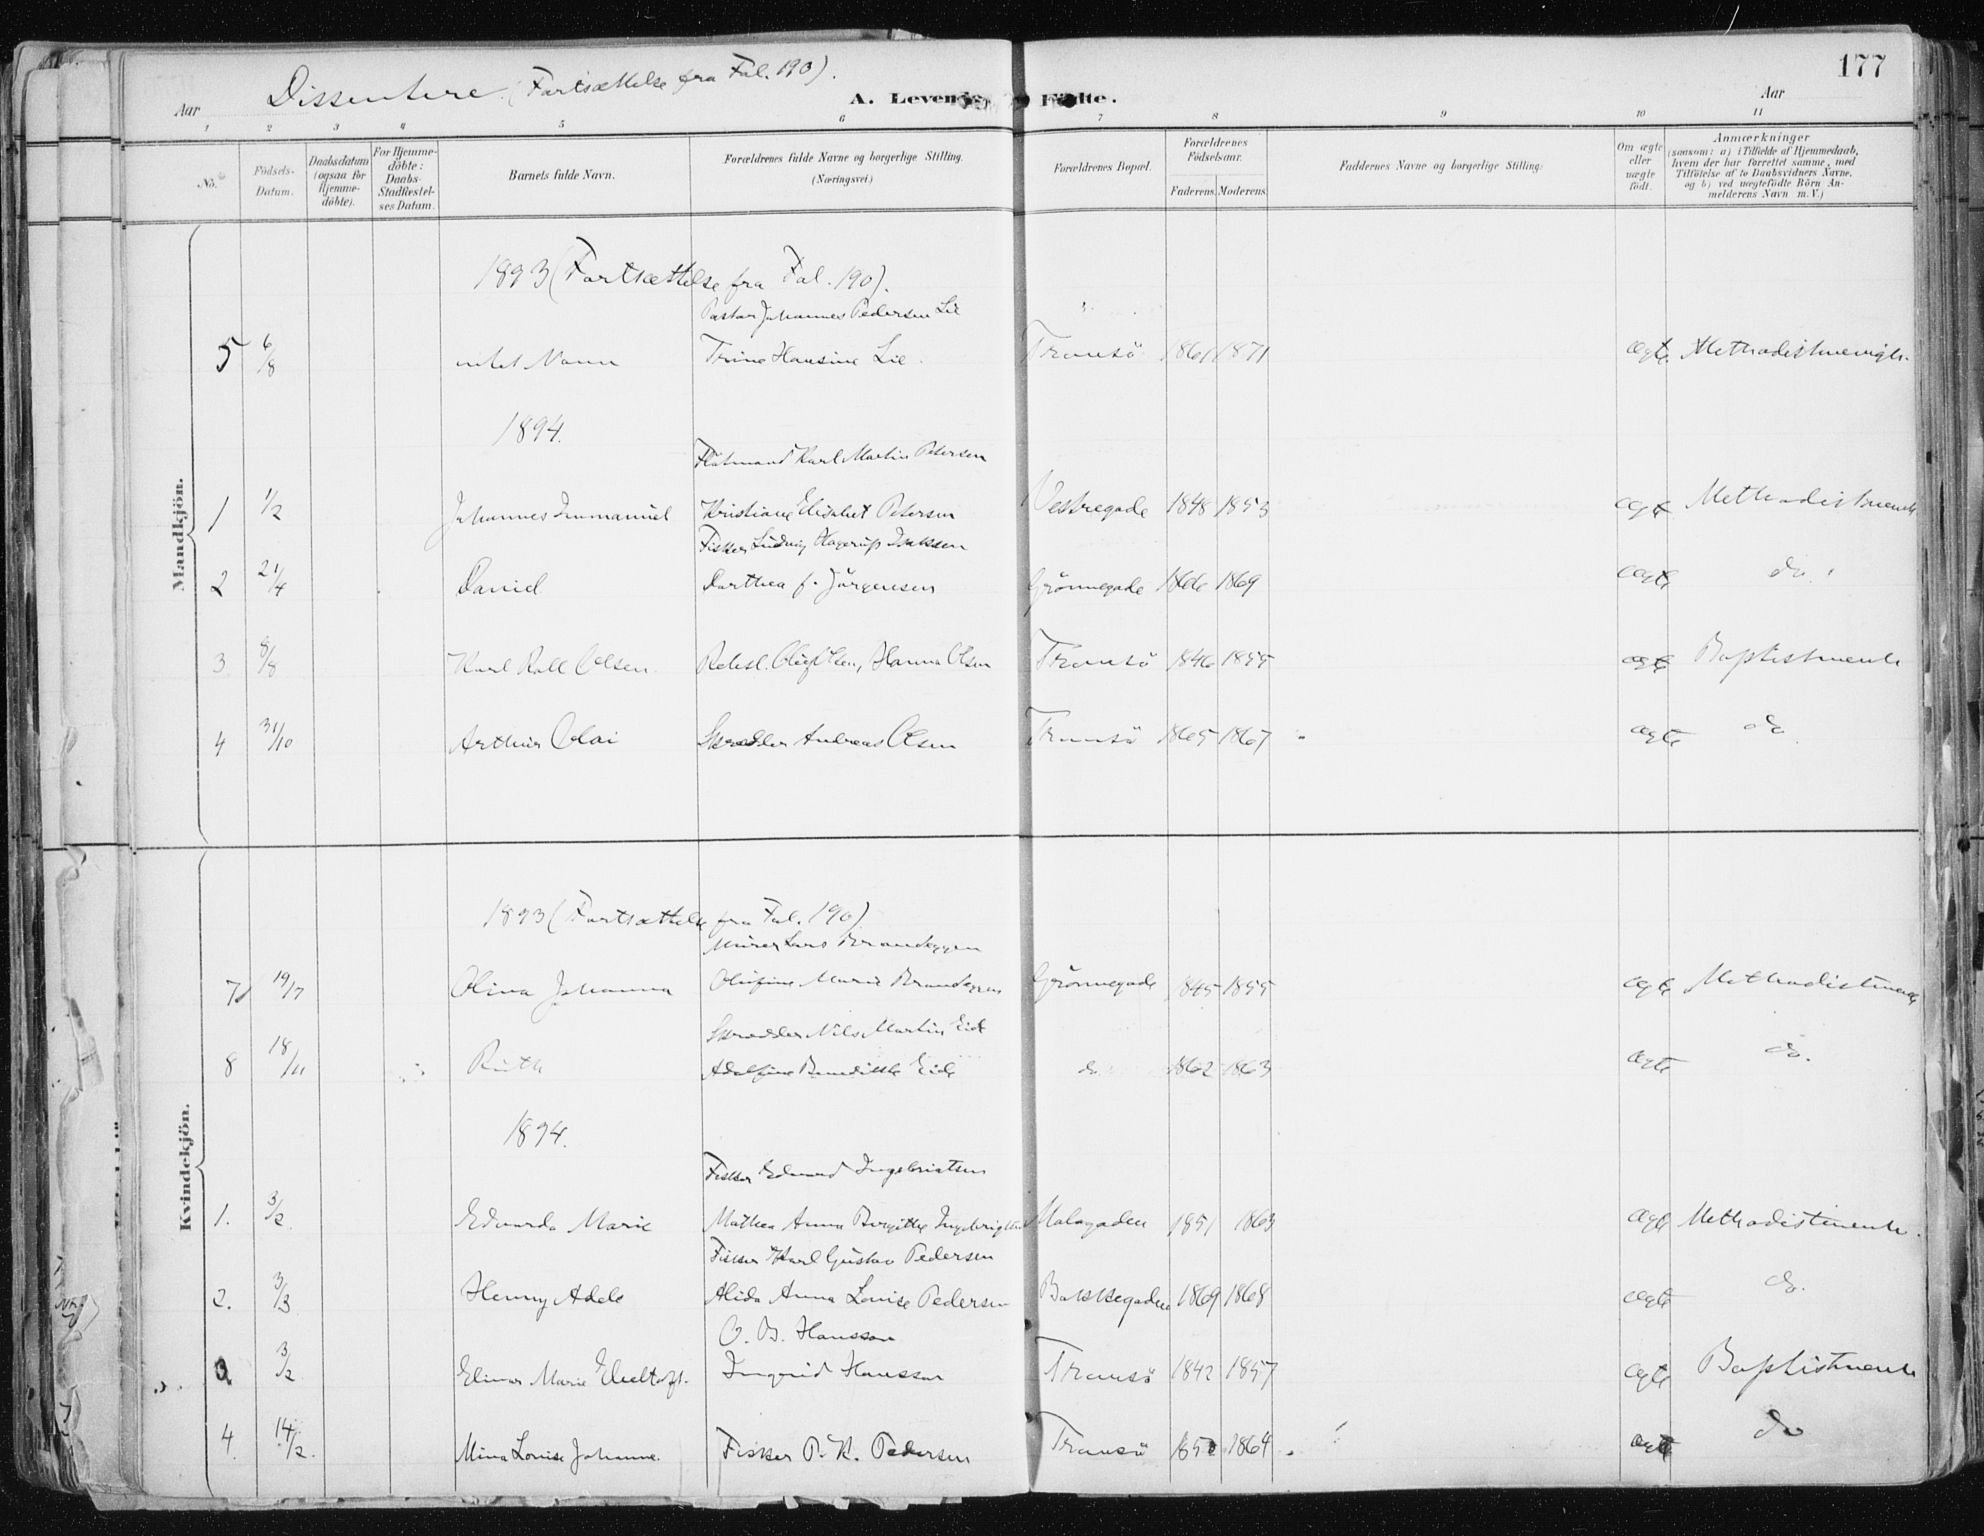 177
Dissentere. (Fortsættelse fra Fol. 190).
Aar A. Levende Födte. Aar
1 2 3 4 5 6 7 8 9 10 11
No. Födsels-Datum. Daabsdatum (ogsaa for Hjemme-döbte). For Hjemme-döbte: Daabs-Stadfæstel-ses Datum. Barnets fulde Navn. Forældrenes fulde Navne og borgerlige Stilling. (Næringsvei.) Forældrenes Bopæl. Forældrenes Födselsaar. Faderens. Moderens. Faddernes Navne og borgerlige Stilling: Om ægte eller uægte födt. Anmærkninger (saasom: a) i Tilfælde af Hjemmedaab, hvem der har forrettet samme, med Tilföielse af to Daabsvidners Navne, og b) ved uægtefödte Börn An-melderens Navn m. V.)
Mandkjön.
1893 (Fortsættelse fra Fol. 190).
Pastor Johannes Pedersen Lie
5 6/8 Trine Hansine Lie Tromsö 1861 1871 ægte
1894.
Karl Martin Petersen
1 1/2 Johannes Immanuel Kristiane Elisabet Petersen Vestregade 1848 1853 ægte
Fisker Ludvig Hagerup Isaksen
2 21/4 David Dorthea f. Jörgensen Grönnegade 1866 1869 ægte do.
3 8/8 Karl Olsen Olsen, Hanna Olsen Tromsö 1846 1855 ægte
4 31/10 Arthur Olai Skrædder Andreas Olsen Tromsö 1865 1867 ægte do
Kvindekjön.
1893 (Fortsættelse fra Fol. 190)
Murer Lars
7 19/7 Olina Johanna Olufine Marie Grönnegade 1845 1855 ægte
Skrædder Nils Martin Eide
8 18/11 Ruth Adolfine Benedikte Eide do 1862 1863 ægte do.
1894.
Fisker Edvard Ingebrigtsen
1. 3/2 Edvarda Marie Mathea Anna Birgitte Ingebrigtsen 1851 1863 ægte
Fisker Karl Gustav Pedersen
2. 3/3 Henny Adele Alida Anna Lovise Pedersen Bakkegaden 1869 1868 ægte do.
O. B. Hansson
3/2 Marie Ingrid Hansson Tromsö 1842 1857 ægte
4. 14/2. Mina Lovise Johanne. Fisker P. K. Pedersen Tromsö 1864 ægte do